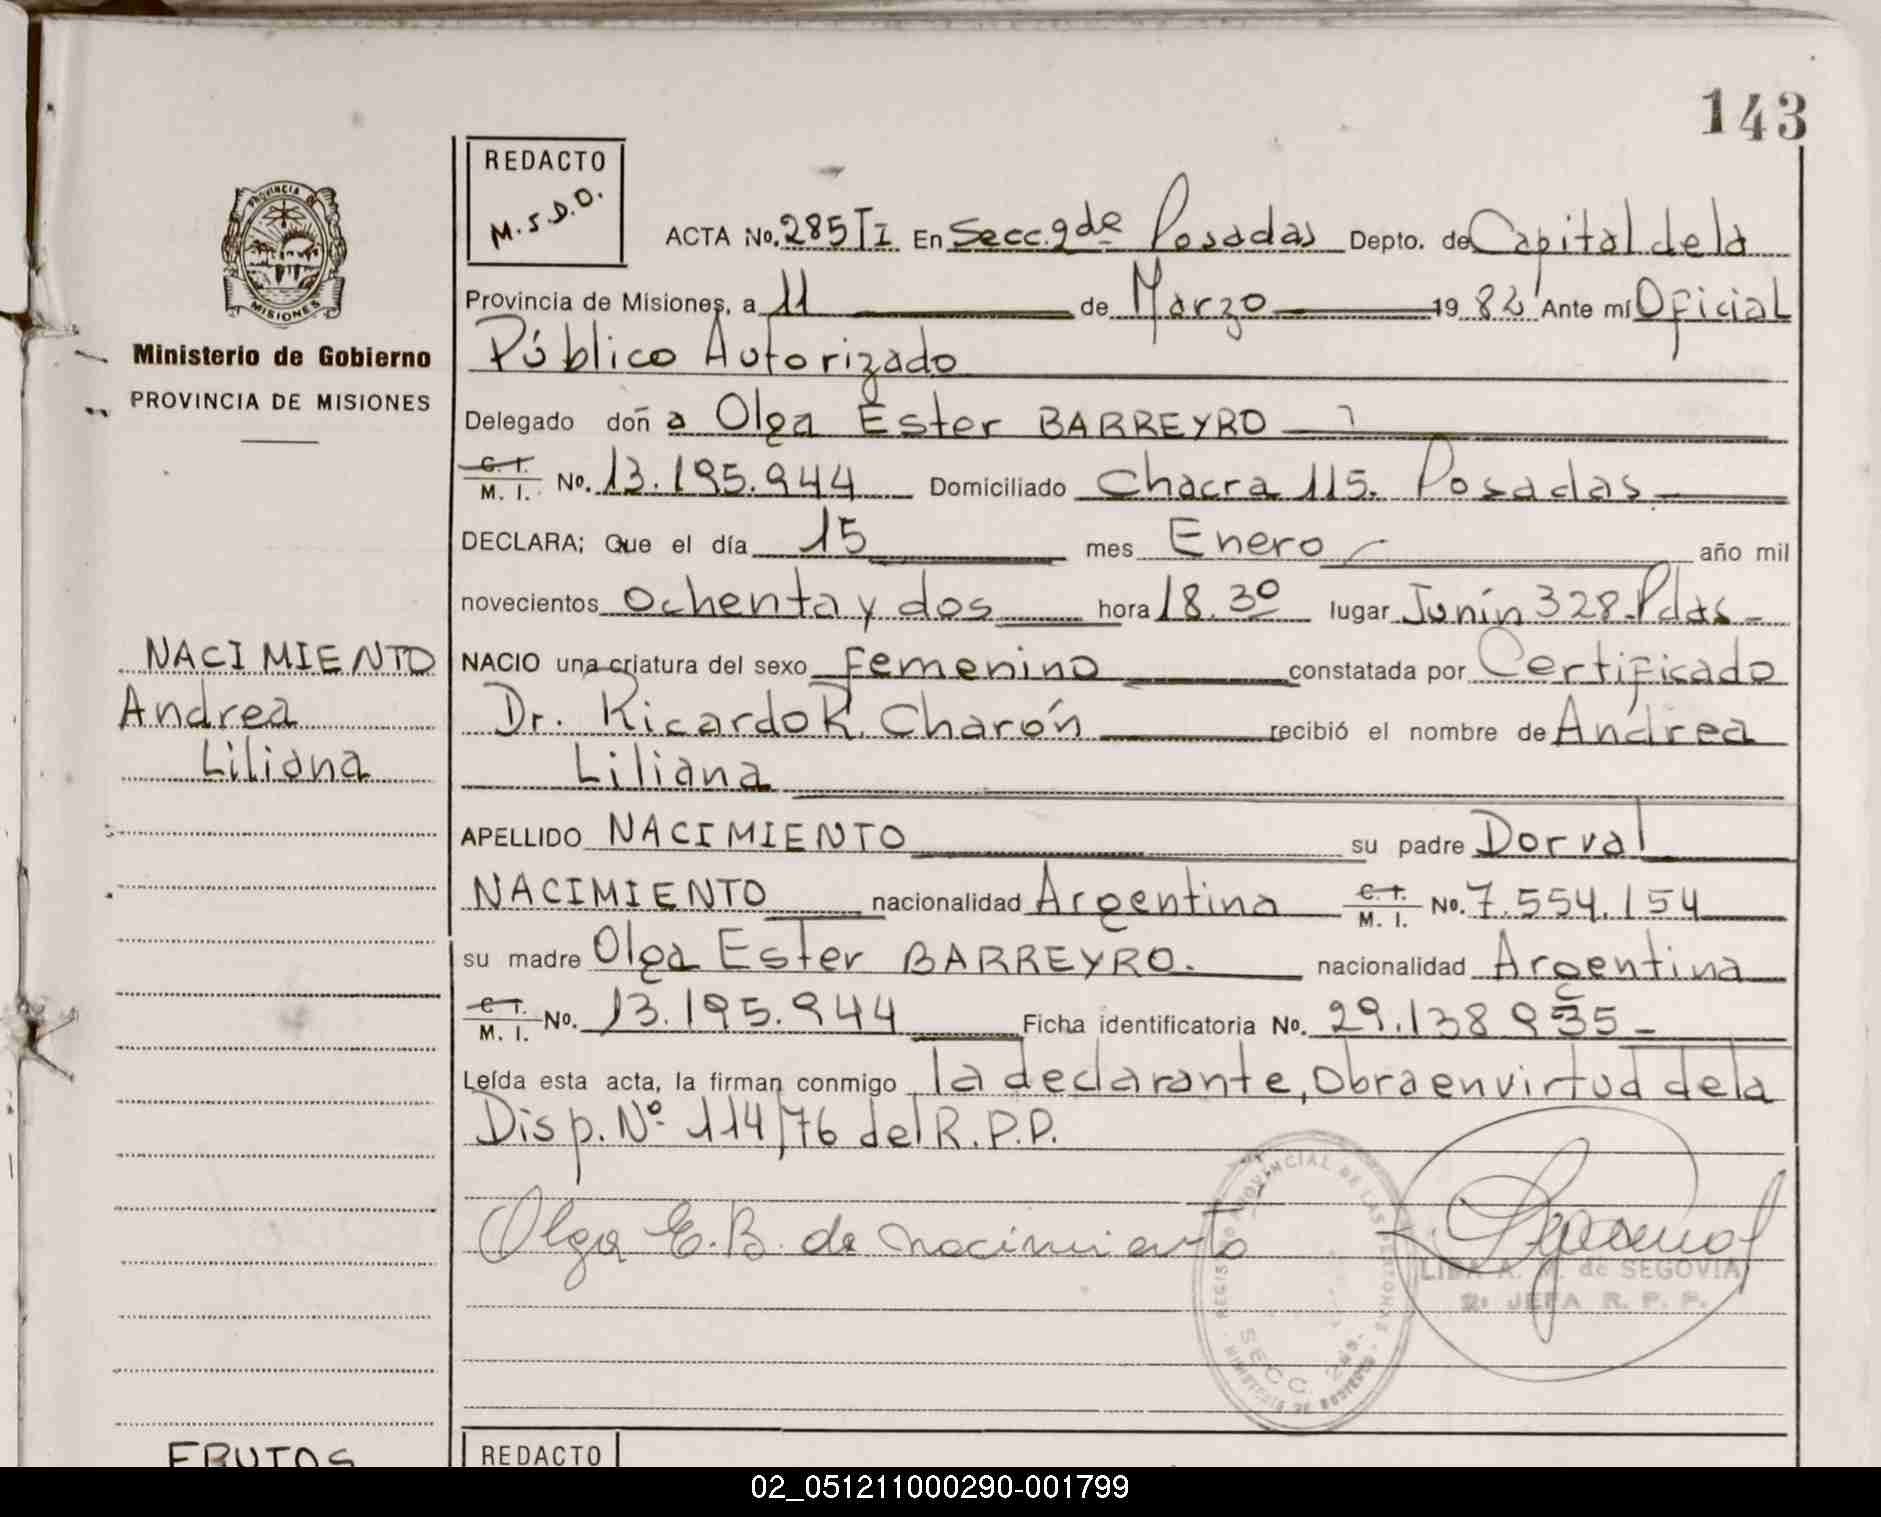 143
REDACTO
M.S.D.O.
PROVINCIA DE
MISIONES
Ministerio de Gobierno
PROVINCIA DE MISIONES
ACTA No. 285 TI En Secc. 2da Posadas Depto. de Capital de la
Provincia de Misiones, a 11 de Marzo 19 82 Ante mí Oficial
Público Autorizado
Delegado doña Olga Ester BARREYRO
C. I. M. I. No. 13.195.944 Domiciliado Chacra 115. Posadas
DECLARA; Que el día 15 mes Enero año mil
novecientos ochenta y dos hora 18.30 lugar Junín 328. Pdas
NACIMIENTO
Andrea
Liliana
NACIO una criatura del sexo femenino constatada por Certificado
Dr. Ricardo R. Charón recibió el nombre de Andrea
Liliana
APELLIDO NACIMIENTO su padre Dorval
NACIMIENTO nacionalidad Argentina C. I. M. I. No. 7.554.154
su madre Olga Ester BARREYRO. nacionalidad Argentina
C. I. M. I. No. 13.195.944 Ficha identificatoria No. 29.138.935
Leída esta acta, la firman conmigo la declarante, Obra en virtud de la
Disp. Nº 114/76 del R.P.P.
Olga E. B. de Nacimiento
REGISTRO PROVINCIAL DE LAS PERSONAS
SECC. 2da.
MINISTERIO DE GOBIERNO
A. M. de SEGOVIA
JEFA R. P. P.
FRUTOS
REDACTO
02_051211000290-001799